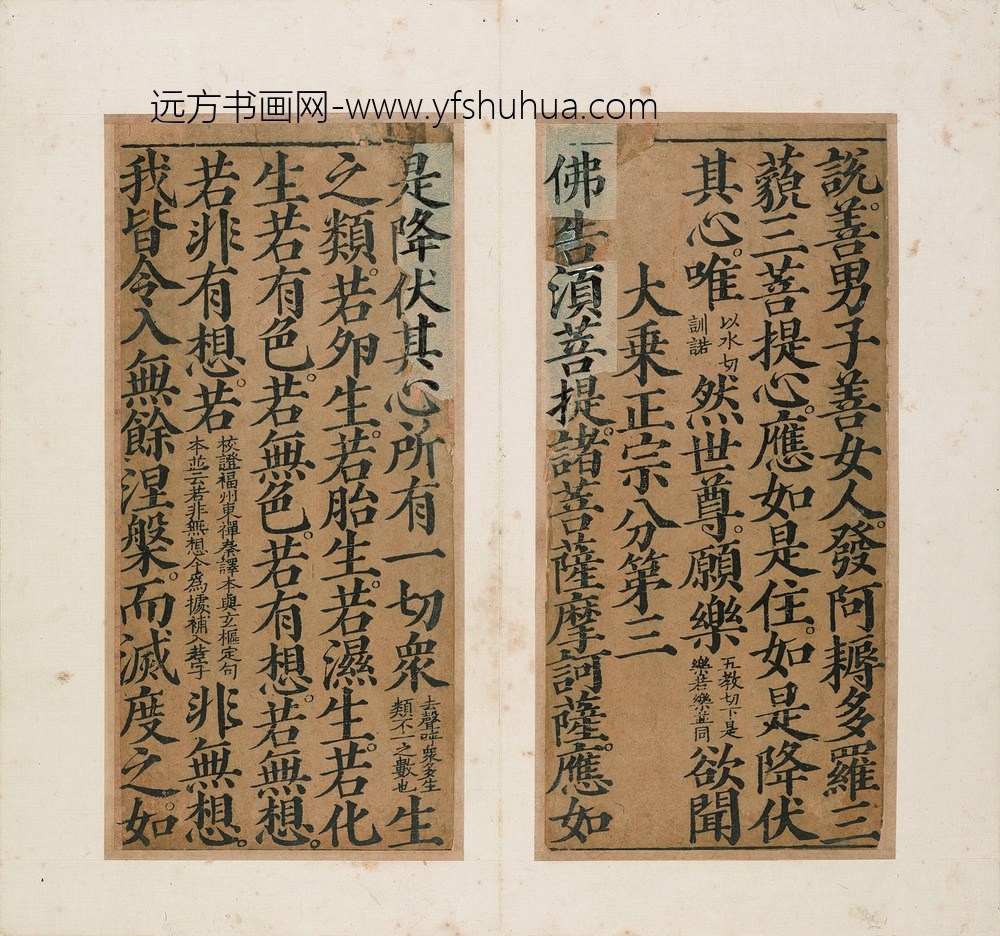 远方书画网-www.yfshuhua.com
說。善男子善女人。發阿耨多羅三
藐三菩提心。應如是住。如是降伏
其心。唯以水切訓諾然世尊。願樂五教切下是樂若樂並同欲聞
大乗正宗分第三
佛告湏菩提。諸菩薩摩訶薩。應如
是降伏其心所有一切衆去聲呼衆多生類不一之數也生
之類。若夘生。若胎生。若濕生。若化
生若有色。若無色。若有想。若無想。
若非有想。若校證福州東禪秦譯本與玄樞定句本並云若非無想今爲據補入若字非無想。
我皆令入無餘涅槃。而滅度之。如